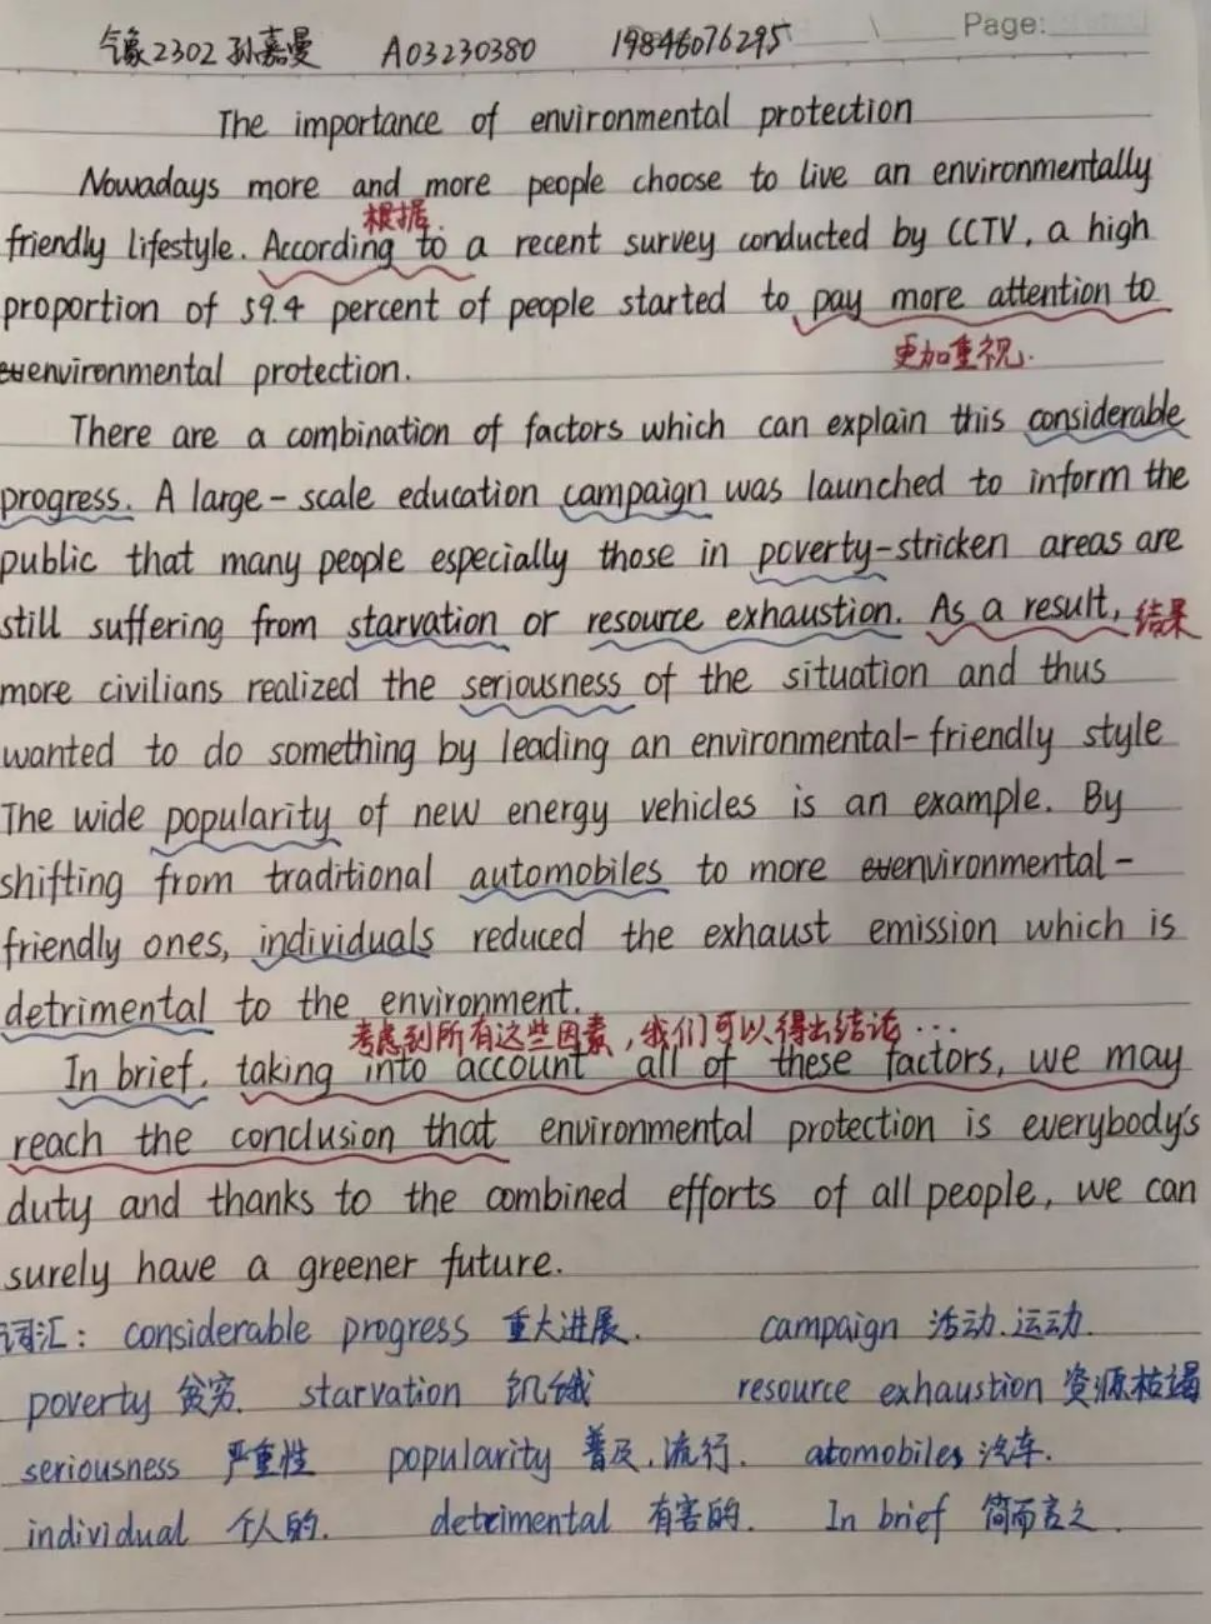 气象2302 孙嘉曼 A03230380 19846076295 Page:
The importance of environmental protection
Nowadays more and more people choose to live an environmentally
根据.
friendly lifestyle. According to a recent survey conducted by CCTV, a high
proportion of 59.4 percent of people started to pay more attention to
更加重视.
environmental protection.
There are a combination of factors which can explain this considerable
progress. A large-scale education campaign was launched to inform the
public that many people especially those in poverty-stricken areas are
still suffering from starvation or resource exhaustion. As a result, 结果
more civilians realized the seriousness of the situation and thus
wanted to do something by leading an environmental-friendly style
The wide popularity of new energy vehicles is an example. By
shifting from traditional automobiles to more environmental-
friendly ones, individuals reduced the exhaust emission which is
detrimental to the environment.
考虑到所有这些因素，我们可以得出结论...
In brief, taking into account all of these factors, we may
reach the conclusion that environmental protection is everybody's
duty and thanks to the combined efforts of all people, we can
surely have a greener future.
词汇: considerable progress 重大进展. campaign 活动.运动.
poverty 贫穷. starvation 饥饿 resource exhaustion 资源枯竭
seriousness 严重性 popularity 普及.流行. atomobiles 汽车.
individual 个人的. detrimental 有害的. In brief 简而言之.